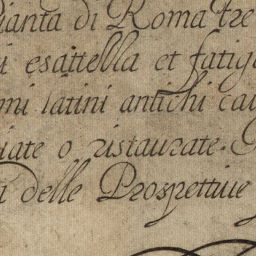 ianta di Roma tre
i esattella et fatig
ni latini antichi ca
iate o ristaurate.
delle Prospettiue